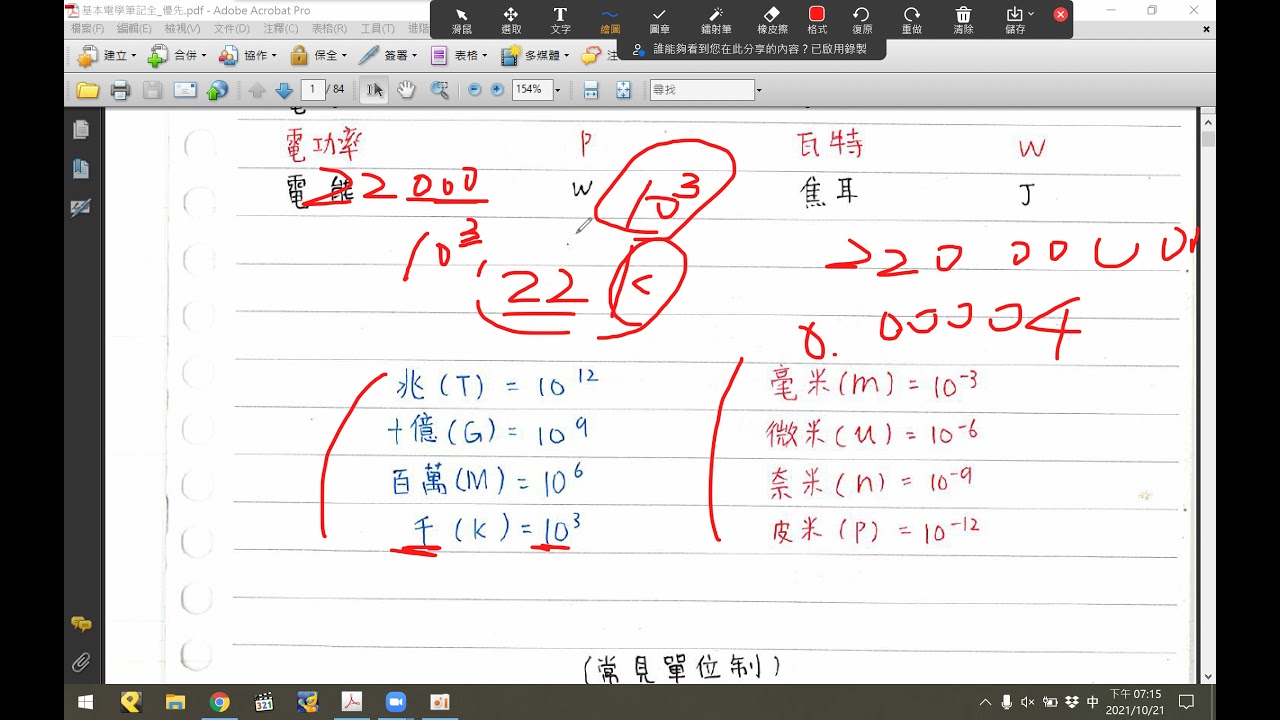 基本電學筆記全_優先.pdf - Adobe Acrobat Pro
滑鼠 選取 文字 繪圖 圖章 鐳射筆 橡皮擦 格式 復原 重做 清除 儲存
檔案(F) 編輯(E) 檢視(V) 文件(D) 注釋(C) 表格(R) 工具(T) 進階
誰能夠看到您在此分享的內容?已啟用錄製
建立 合併 協作 保全 簽署 表格 多媒體 注
1 / 84 154% 尋找
電功率 P 瓦特 W
電能 W 焦耳 J
22 000
10³
10³
22 K
0.00004
兆(T) = 10¹² 毫米(m) = 10⁻³
十億(G) = 10⁹ 微米(u) = 10⁻⁶
百萬(M) = 10⁶ 奈米(n) = 10⁻⁹
千(K) = 10³ 皮米(P) = 10⁻¹²
(常見單位制)
321
中 下午 07:15
2021/10/21